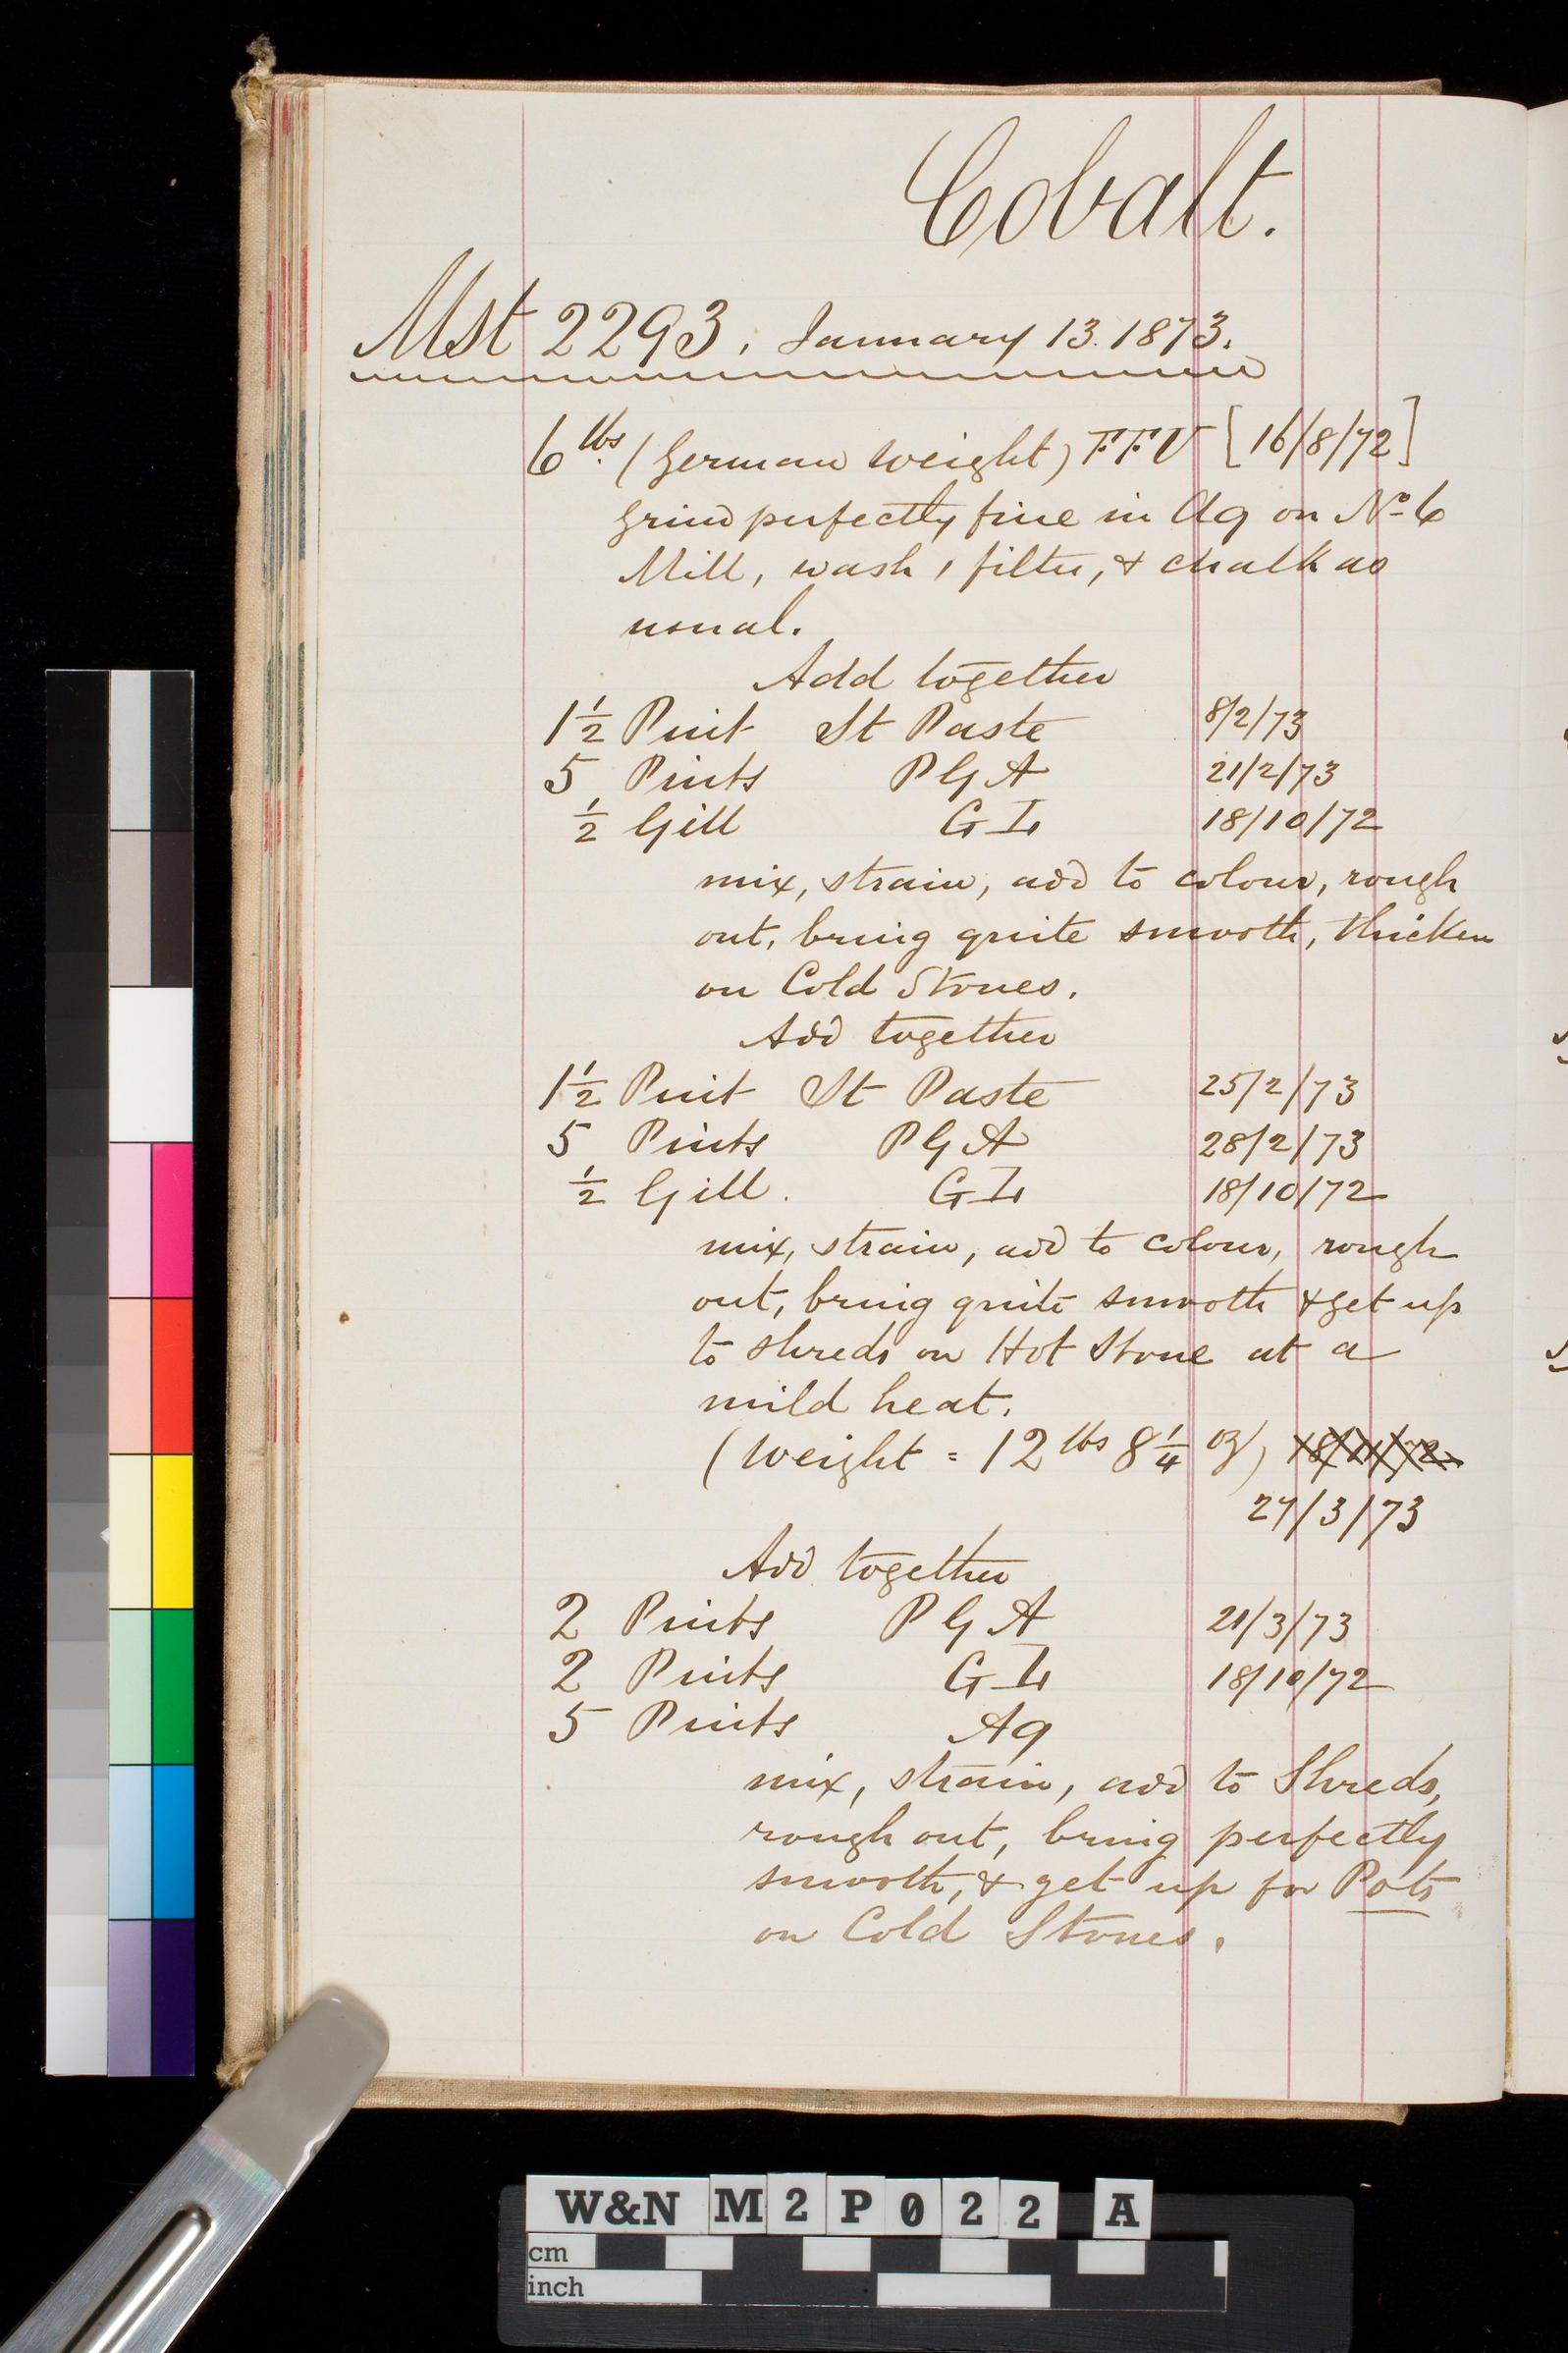 Cobalt.
Mst 2293, January 13. 1873.
6 lbs. (German weight) FFV [16/8/72]
grind perfectly fine in Aq on No 6
Mill, wash, filter, & chalk as
usual.
Add together
1½ Pint St Paste 8/2/73
5 Pints PGA 21/2/73
½ Gill GL 18/10/72
mix, strain, add to colour, rough
out, bring quite smooth, thicken
on Cold Stones.
Add together
1½ Pint St Paste 25/2/73
5 Pints PGA 28/2/73
½ Gill. GL 18/10/72
mix, strain, add to colour, rough
out, bring quite smooth & get up
to shreds on Hot Stone at a
mild heat.
(Weight = 12 lbs 8¼ oz)
27/3/73
Add together
2 Pints PGA 21/3/73
2 Pints GL 18/10/72
5 Pints Aq
mix, strain, add to Shreds,
rough out, bring perfectly
smooth, & get up for Pots
on Cold Stones.
W&N M2P022 A
cm
inch